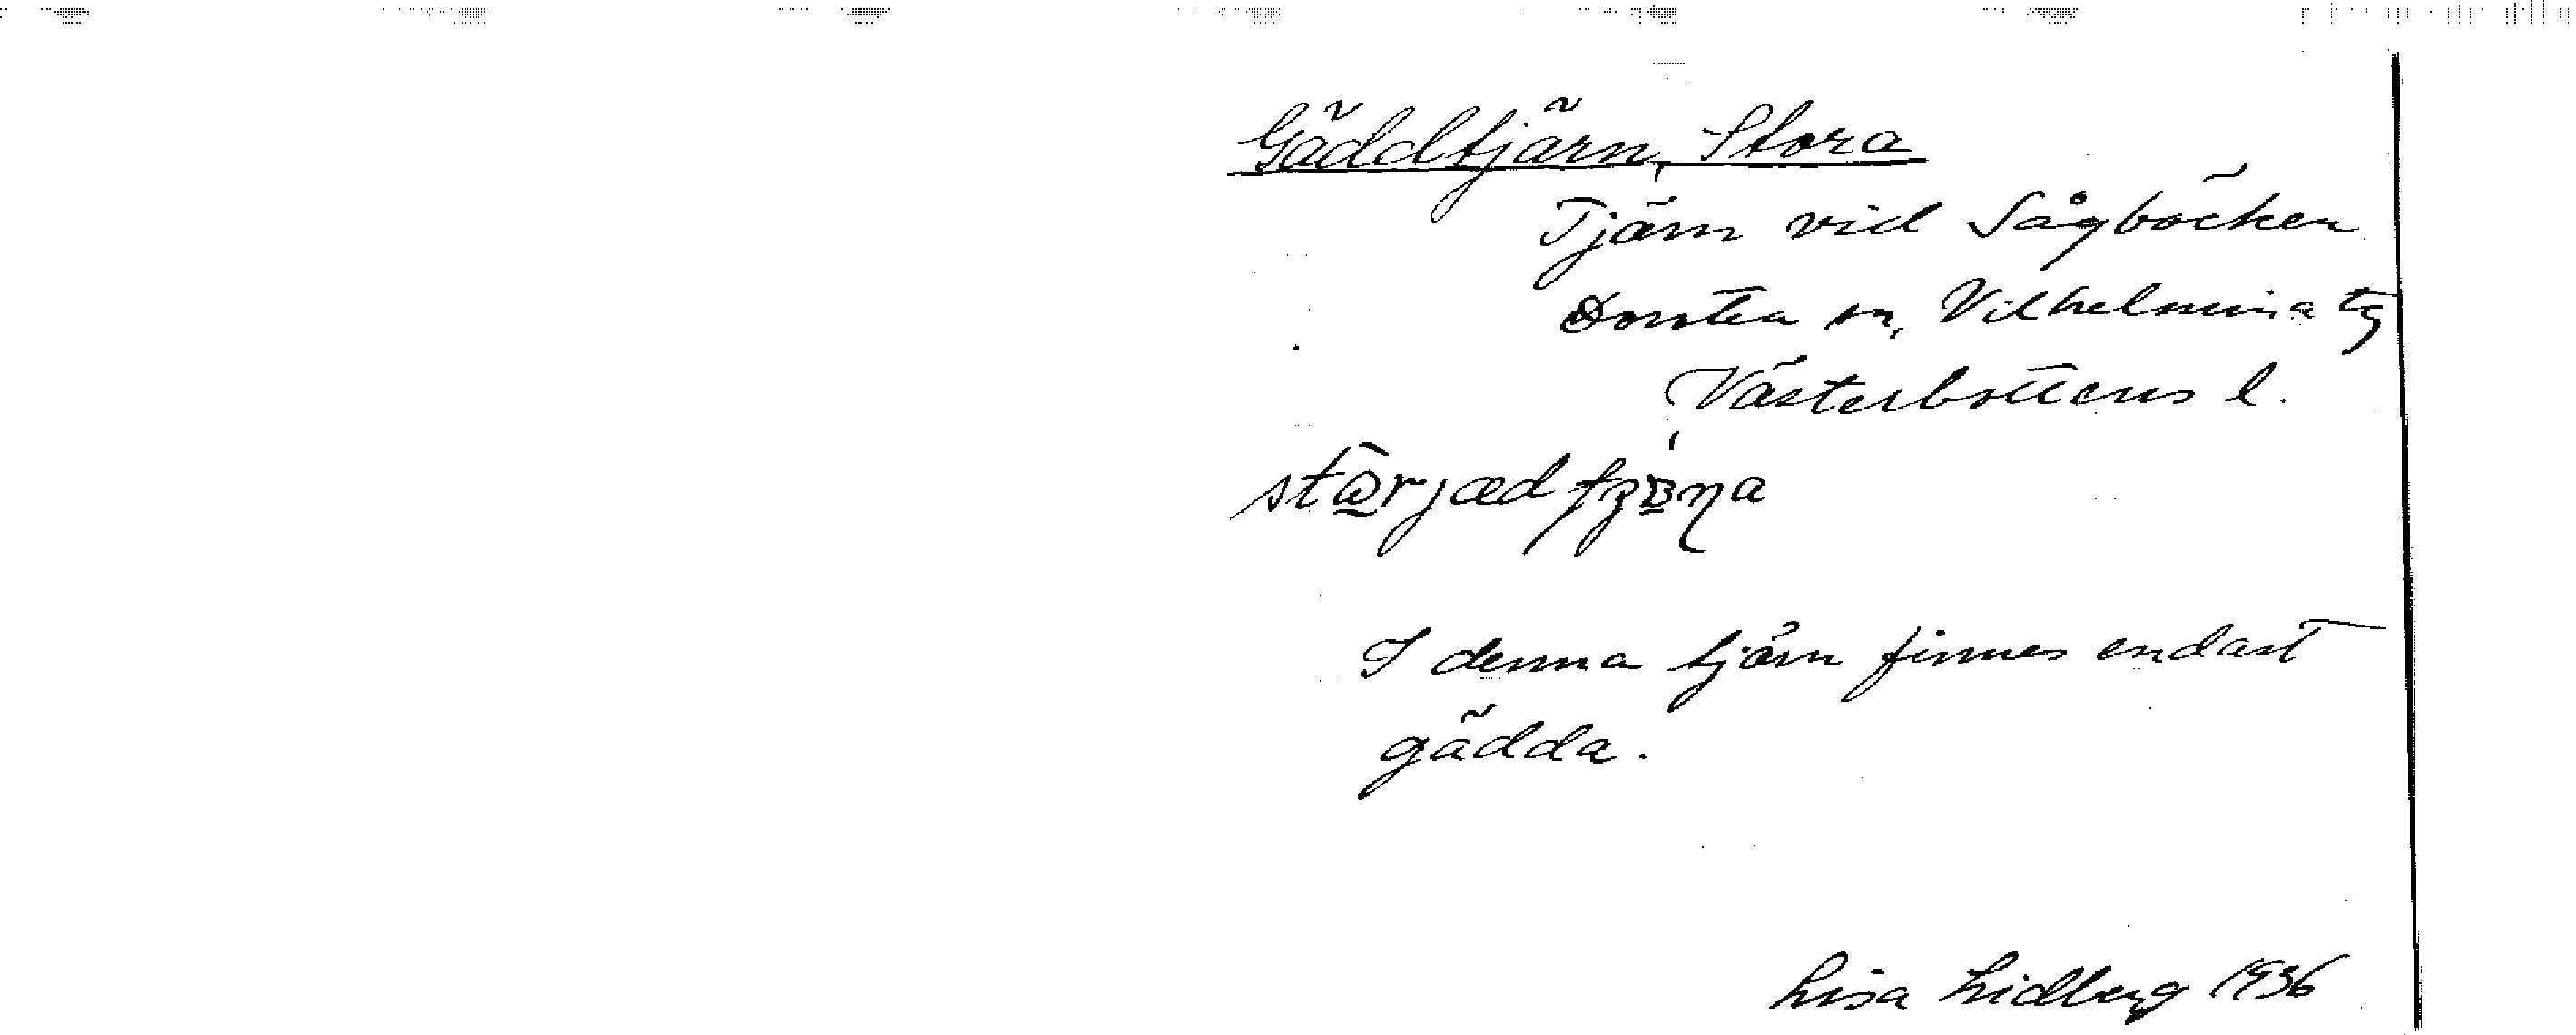 Gäddtjärn, Stora
Tjärn vid Sågbäcken
Dorotea sn, Vilhelmina tg
Västerbottens l.
I denna tjärn finnes endast
gädda.
Lisa Lidberg 1936